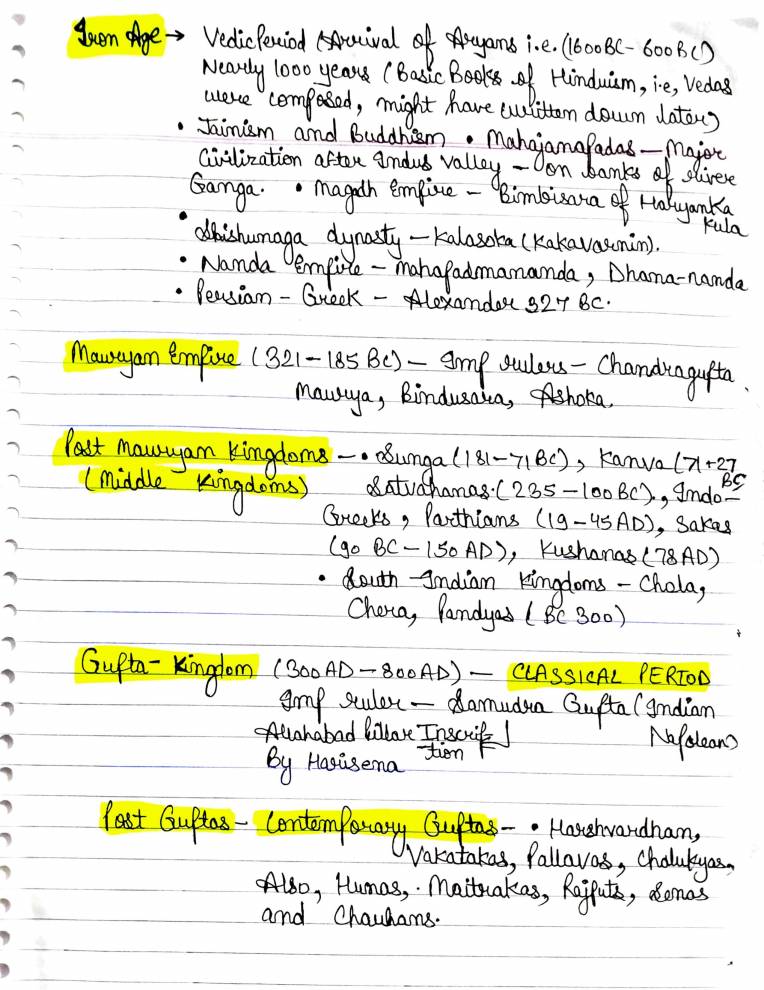 Iron Age → Vedic Period (Arrival of Aryans i.e. (1600BC - 600BC)
Nearly 1000 years (Basic Books of Hinduism, i.e, Vedas
were composed, might have written down later)
• Jainism and Buddhism • Mahajanapadas — Major
Civilization after Indus Valley — on banks of river
Ganga. • Magadh Empire — Bimbisara of Haryanka
Kula
• Shishunaga dynasty — Kalasoka (Kakavarnin).
• Nanda Empire — Mahapadmananda, Dhana-nanda
• Persian - Greek - Alexander 327 BC.
Mauryan Empire (321 - 185 BC) — Imp rulers — Chandragupta
Maurya, Bindusara, Ashoka.
Post Mauryan Kingdoms — • Sunga (181-71BC), Kanva (71-27
BC)
(Middle Kingdoms) Satvahanas (235-100BC), Indo-
Greeks, Parthians (19-45AD), Sakas
(90 BC - 150 AD), Kushanas (78AD)
• South Indian Kingdoms - Chola,
Chera, Pandyas (BC 300)
Gupta - Kingdom (300AD - 800AD) — CLASSICAL PERIOD
Imp ruler — Samudra Gupta (Indian
Napolean)
Allahabad Pillar Inscrip
tion
By Harisena
Post Guptas - Contemporary Guptas - • Harshvardham,
Vakatakas, Pallavas, Chalukyas,
Also, Hunas, Maitrakas, Rajputs, Senas
and Chauhans.